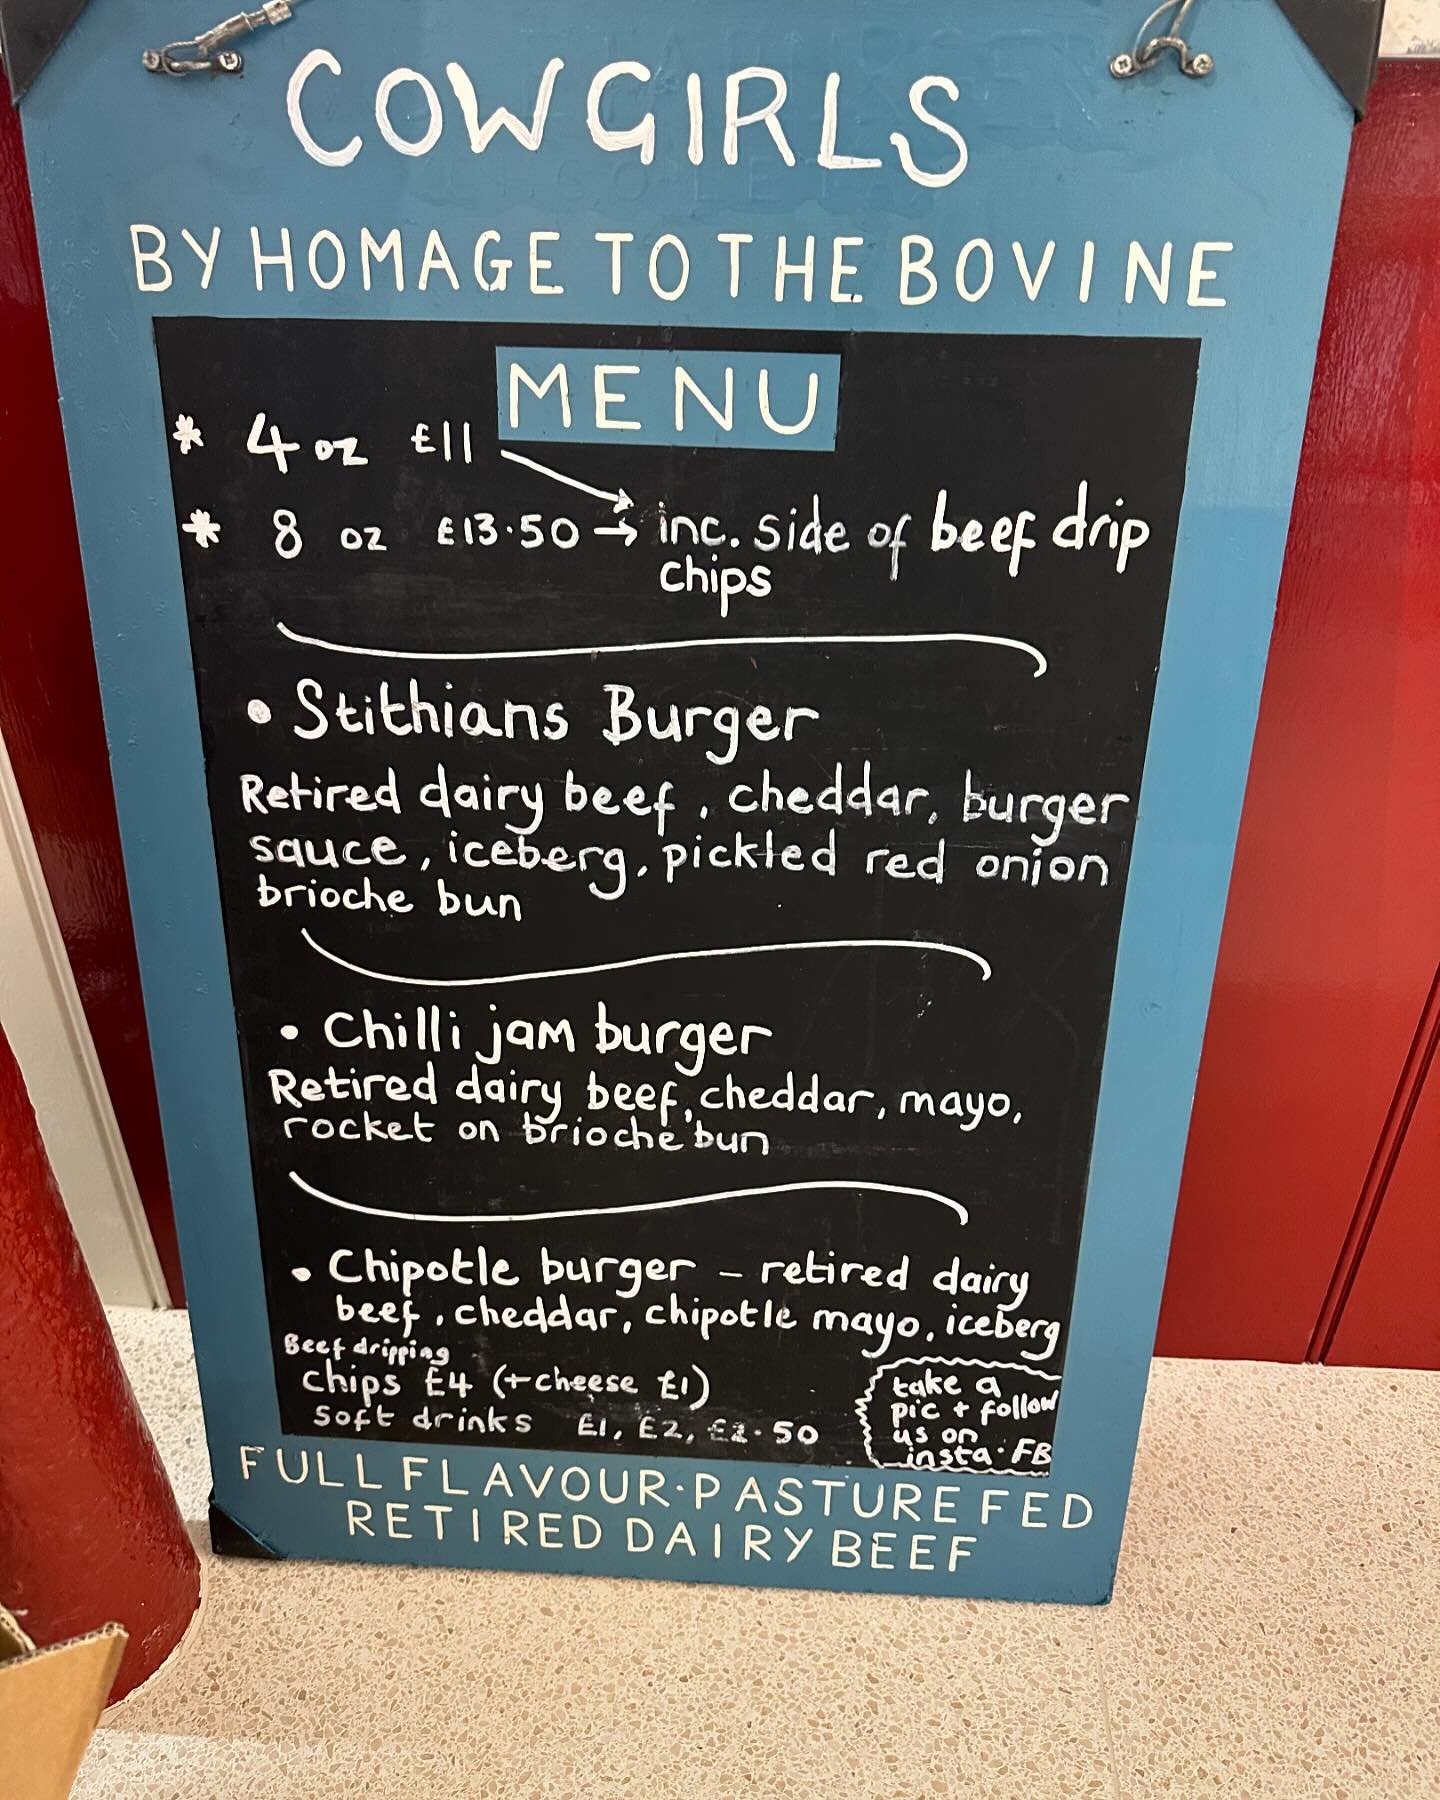 COWGIRLS
BY HOMAGE TO THE BOVINE
MENU
* 4 oz £11
* 8 oz £13.50 → inc. side of beef drip
chips
• Stithians Burger
Retired dairy beef, cheddar, burger
sauce, iceberg, pickled red onion
brioche bun
• Chilli jam burger
Retired dairy beef, cheddar, mayo,
rocket on brioche bun
• Chipotle burger – retired dairy
beef, cheddar, chipotle mayo, iceberg
Beef dripping
chips £4 (+cheese £1)
soft drinks £1, £2, £2.50
take a
pic + follow
us on
insta · FB
FULL FLAVOUR · PASTURE FED
RETIRED DAIRY BEEF